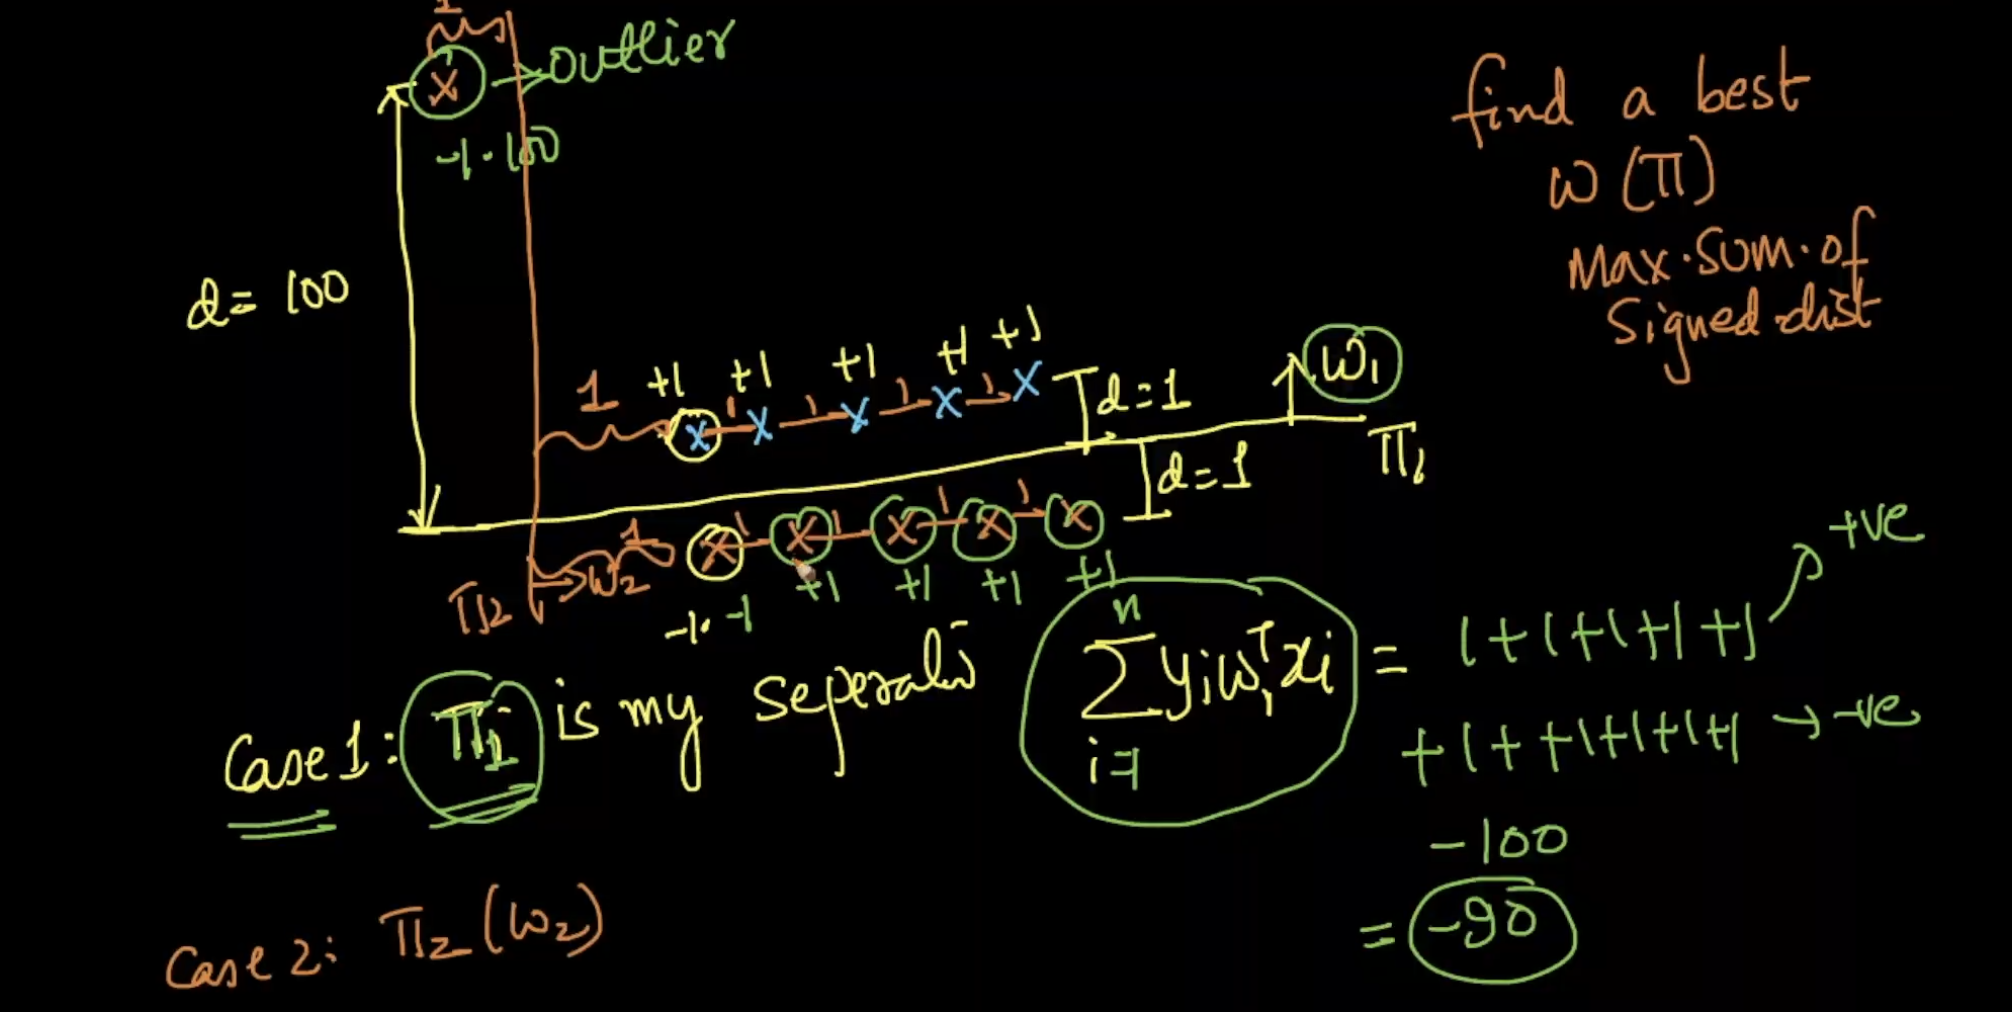 1
x → outlier
-1.100
find a best
w (π)
Max.Sum.of
Signed.dist
d= 100
+1 +1 +1 +1 +1
1 x 1 x 1 x 1 x 1 x
d=1
w₁
π₁
d=1
1 x 1 x 1 x 1 x 1 x
π₂ → w₂
-1.-1 +1 +1 +1 +1
Case 1: π₁ is my seperati
n
∑ yᵢw₁ᵀxᵢ = 1+1+1+1+1 +ve
i=1
+1++1+1+1+1 → -ve
-100
= -90
Case 2: π₂ (w₂)